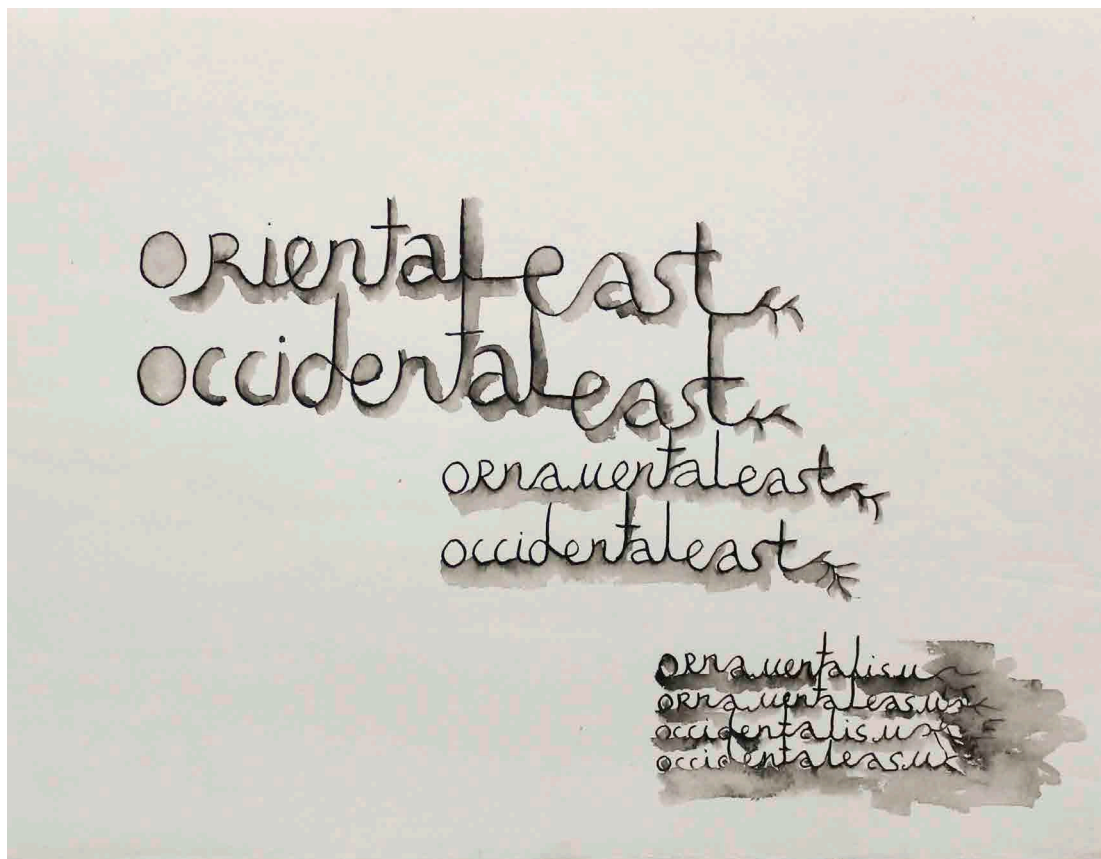 ORiental east
occidental east
ORnamental east
occidental east
ORnamentalism
ORnamentaleasm
occidentalism
occidentaleasm